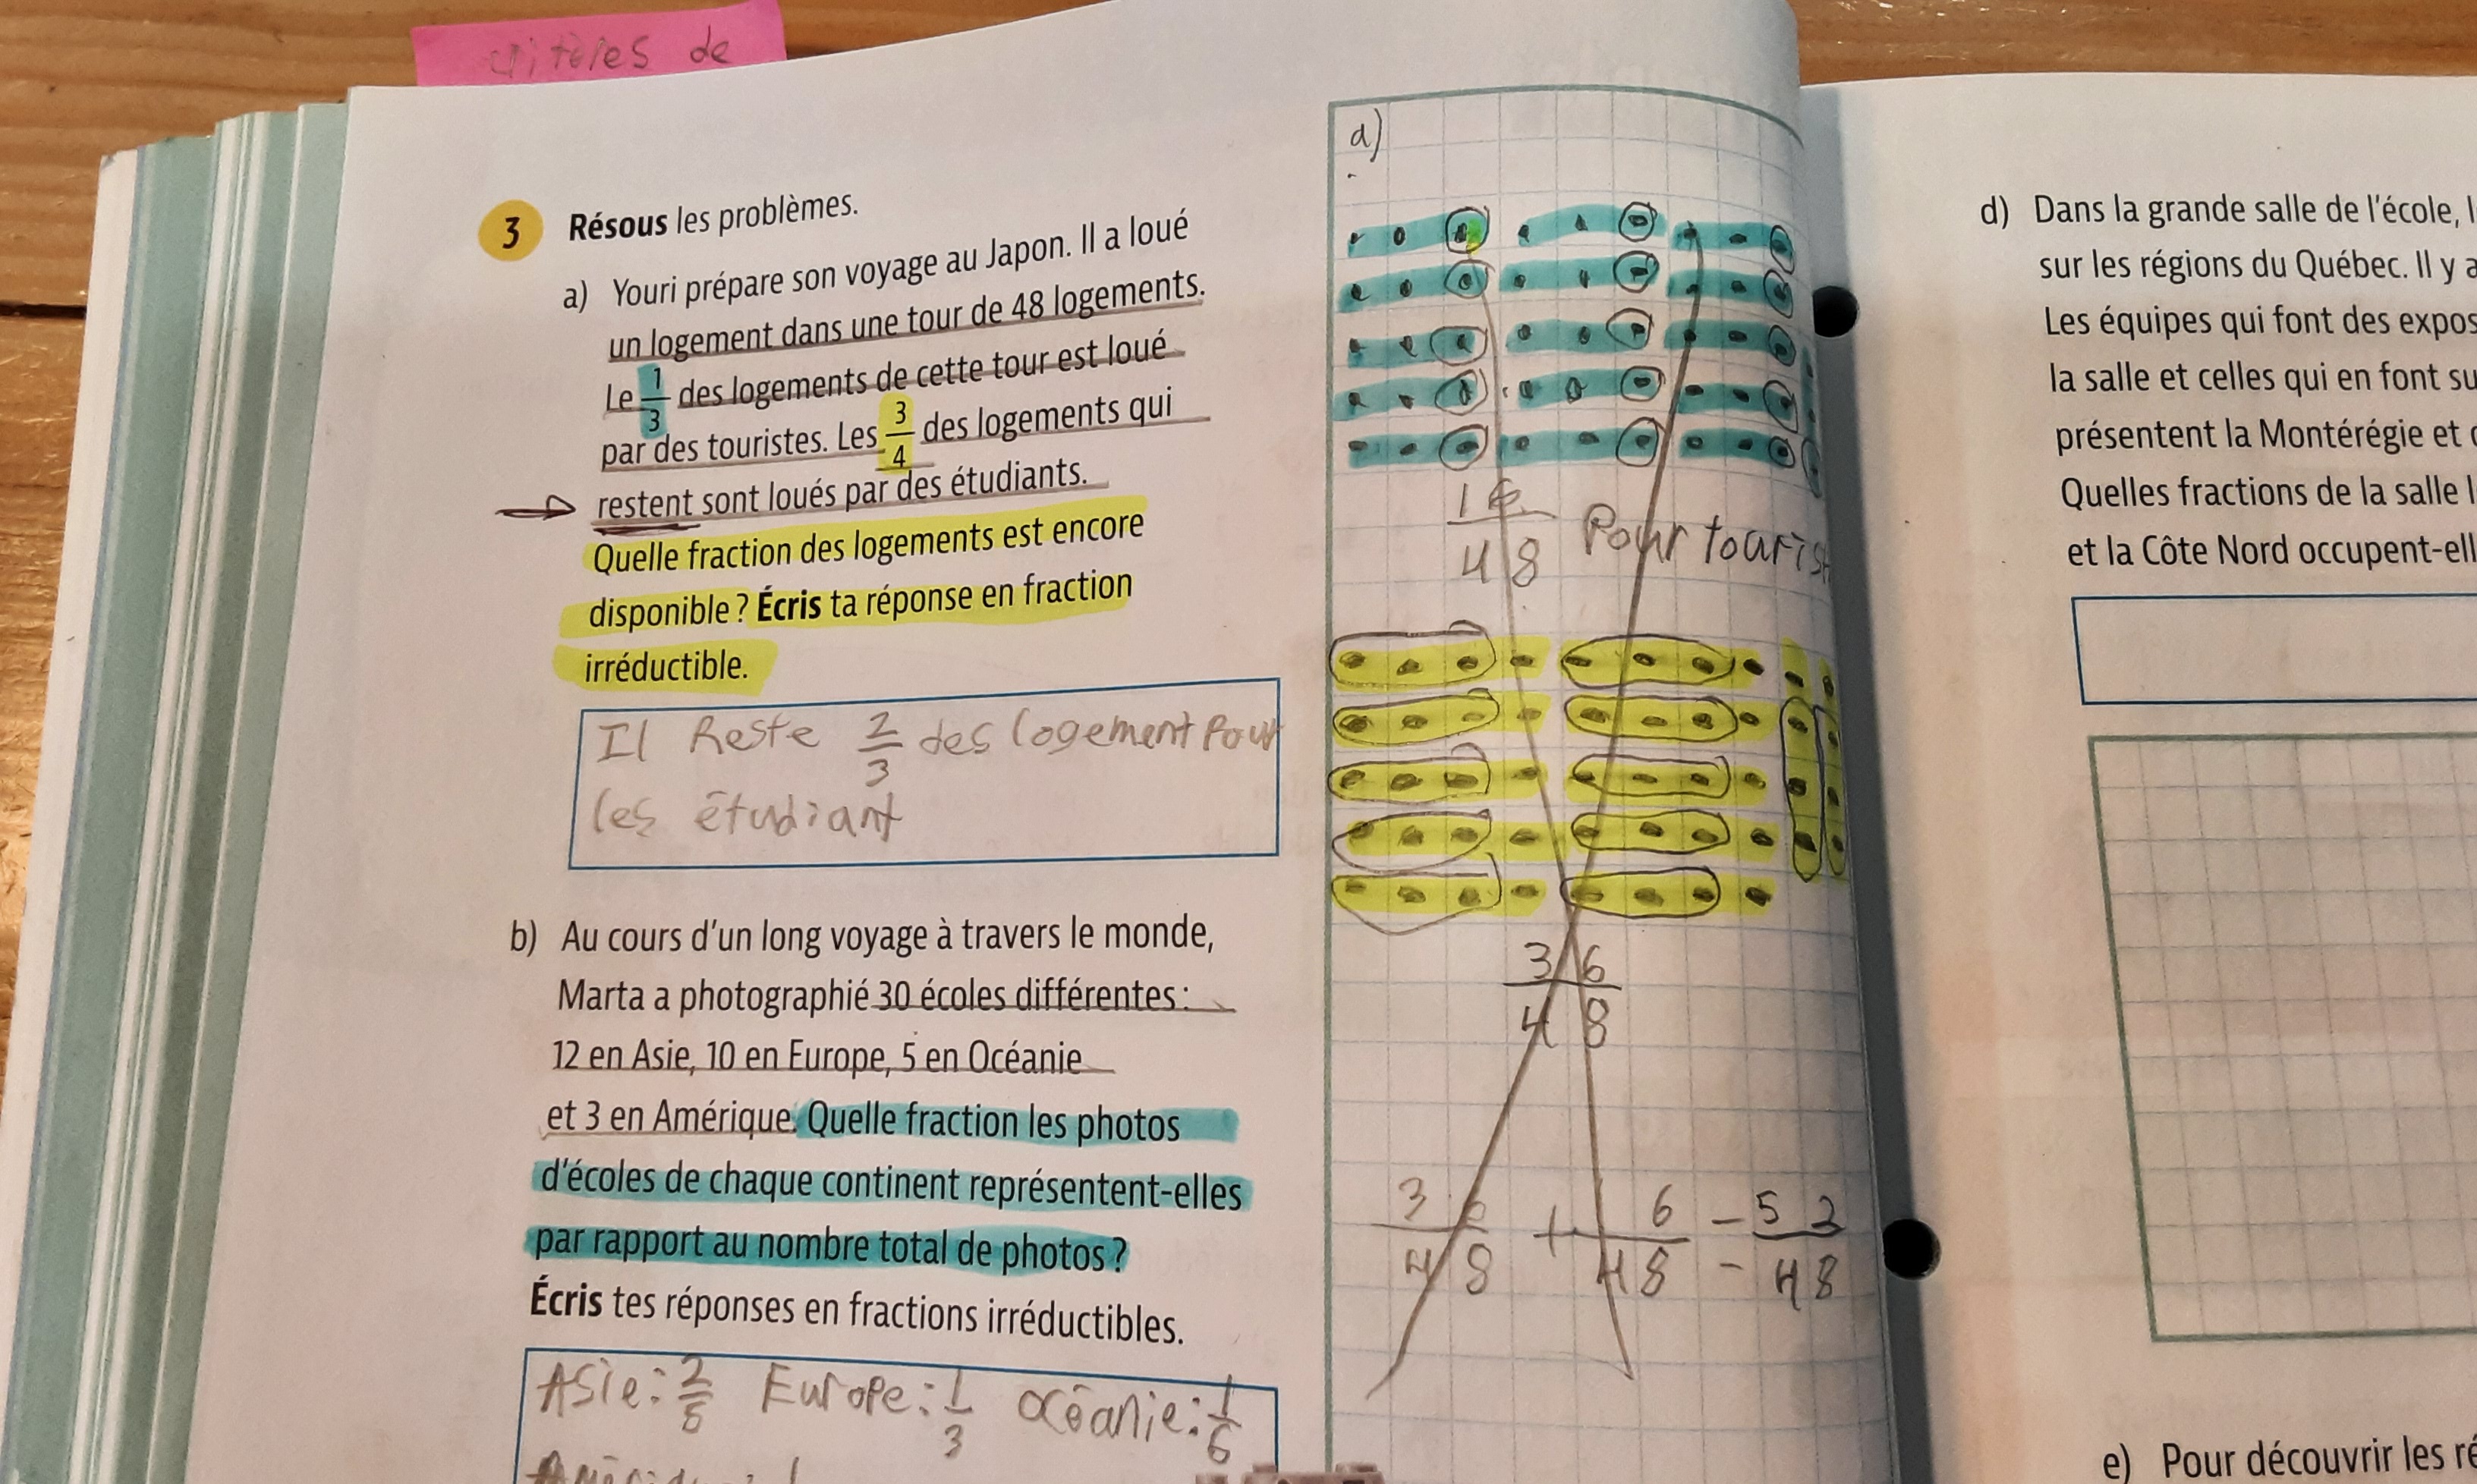 critères de
3 Résous les problèmes.
a) Youri prépare son voyage au Japon. Il a loué
un logement dans une tour de 48 logements.
Le 1/3 des logements de cette tour est loué
par des touristes. Les 3/4 des logements qui
restent sont loués par des étudiants.
Quelle fraction des logements est encore
disponible ? Écris ta réponse en fraction
irréductible.
Il Reste 2/3 des logement pour
les étudiant
b) Au cours d'un long voyage à travers le monde,
Marta a photographié 30 écoles différentes :
12 en Asie, 10 en Europe, 5 en Océanie
et 3 en Amérique. Quelle fraction les photos
d'écoles de chaque continent représentent-elles
par rapport au nombre total de photos ?
Écris tes réponses en fractions irréductibles.
Asie: 2/5 Europe: 1/3 Océanie: 1/6
a)
16/48 Pour tourist
36/48
36/48 + 6/48 = 52/48
d) Dans la grande salle de l'école, l
sur les régions du Québec. Il y a
Les équipes qui font des expos
la salle et celles qui en font su
présentent la Montérégie et
Quelles fractions de la salle l
et la Côte Nord occupent-ell
e) Pour découvrir les ré